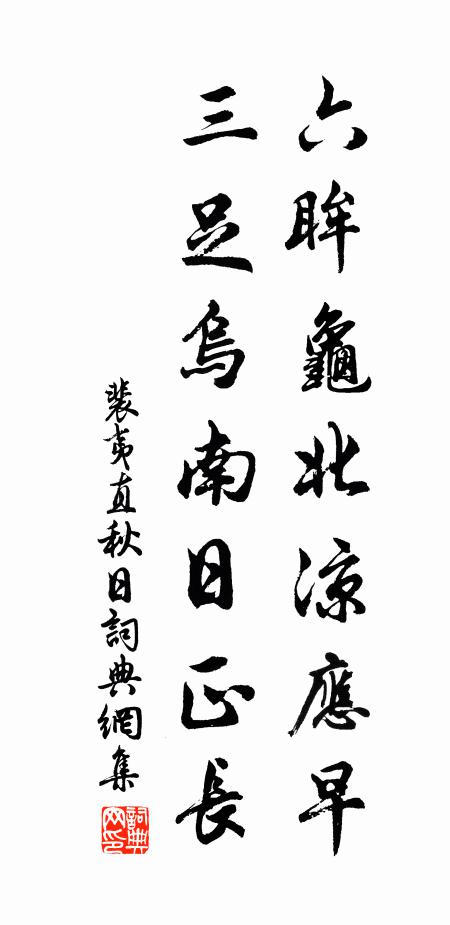 六眸龜北涼應早
三足烏南日正長
裴夷直秋日詞典網集
詞典網印